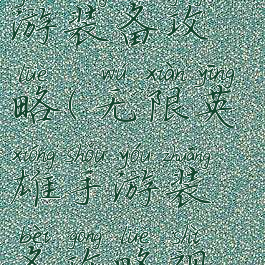 游装备攻
lüè wú xiàn yīng
略(无限英
xióng shǒu yóu zhuāng
雄手游装
bèi gōng lüè shì
备攻略视